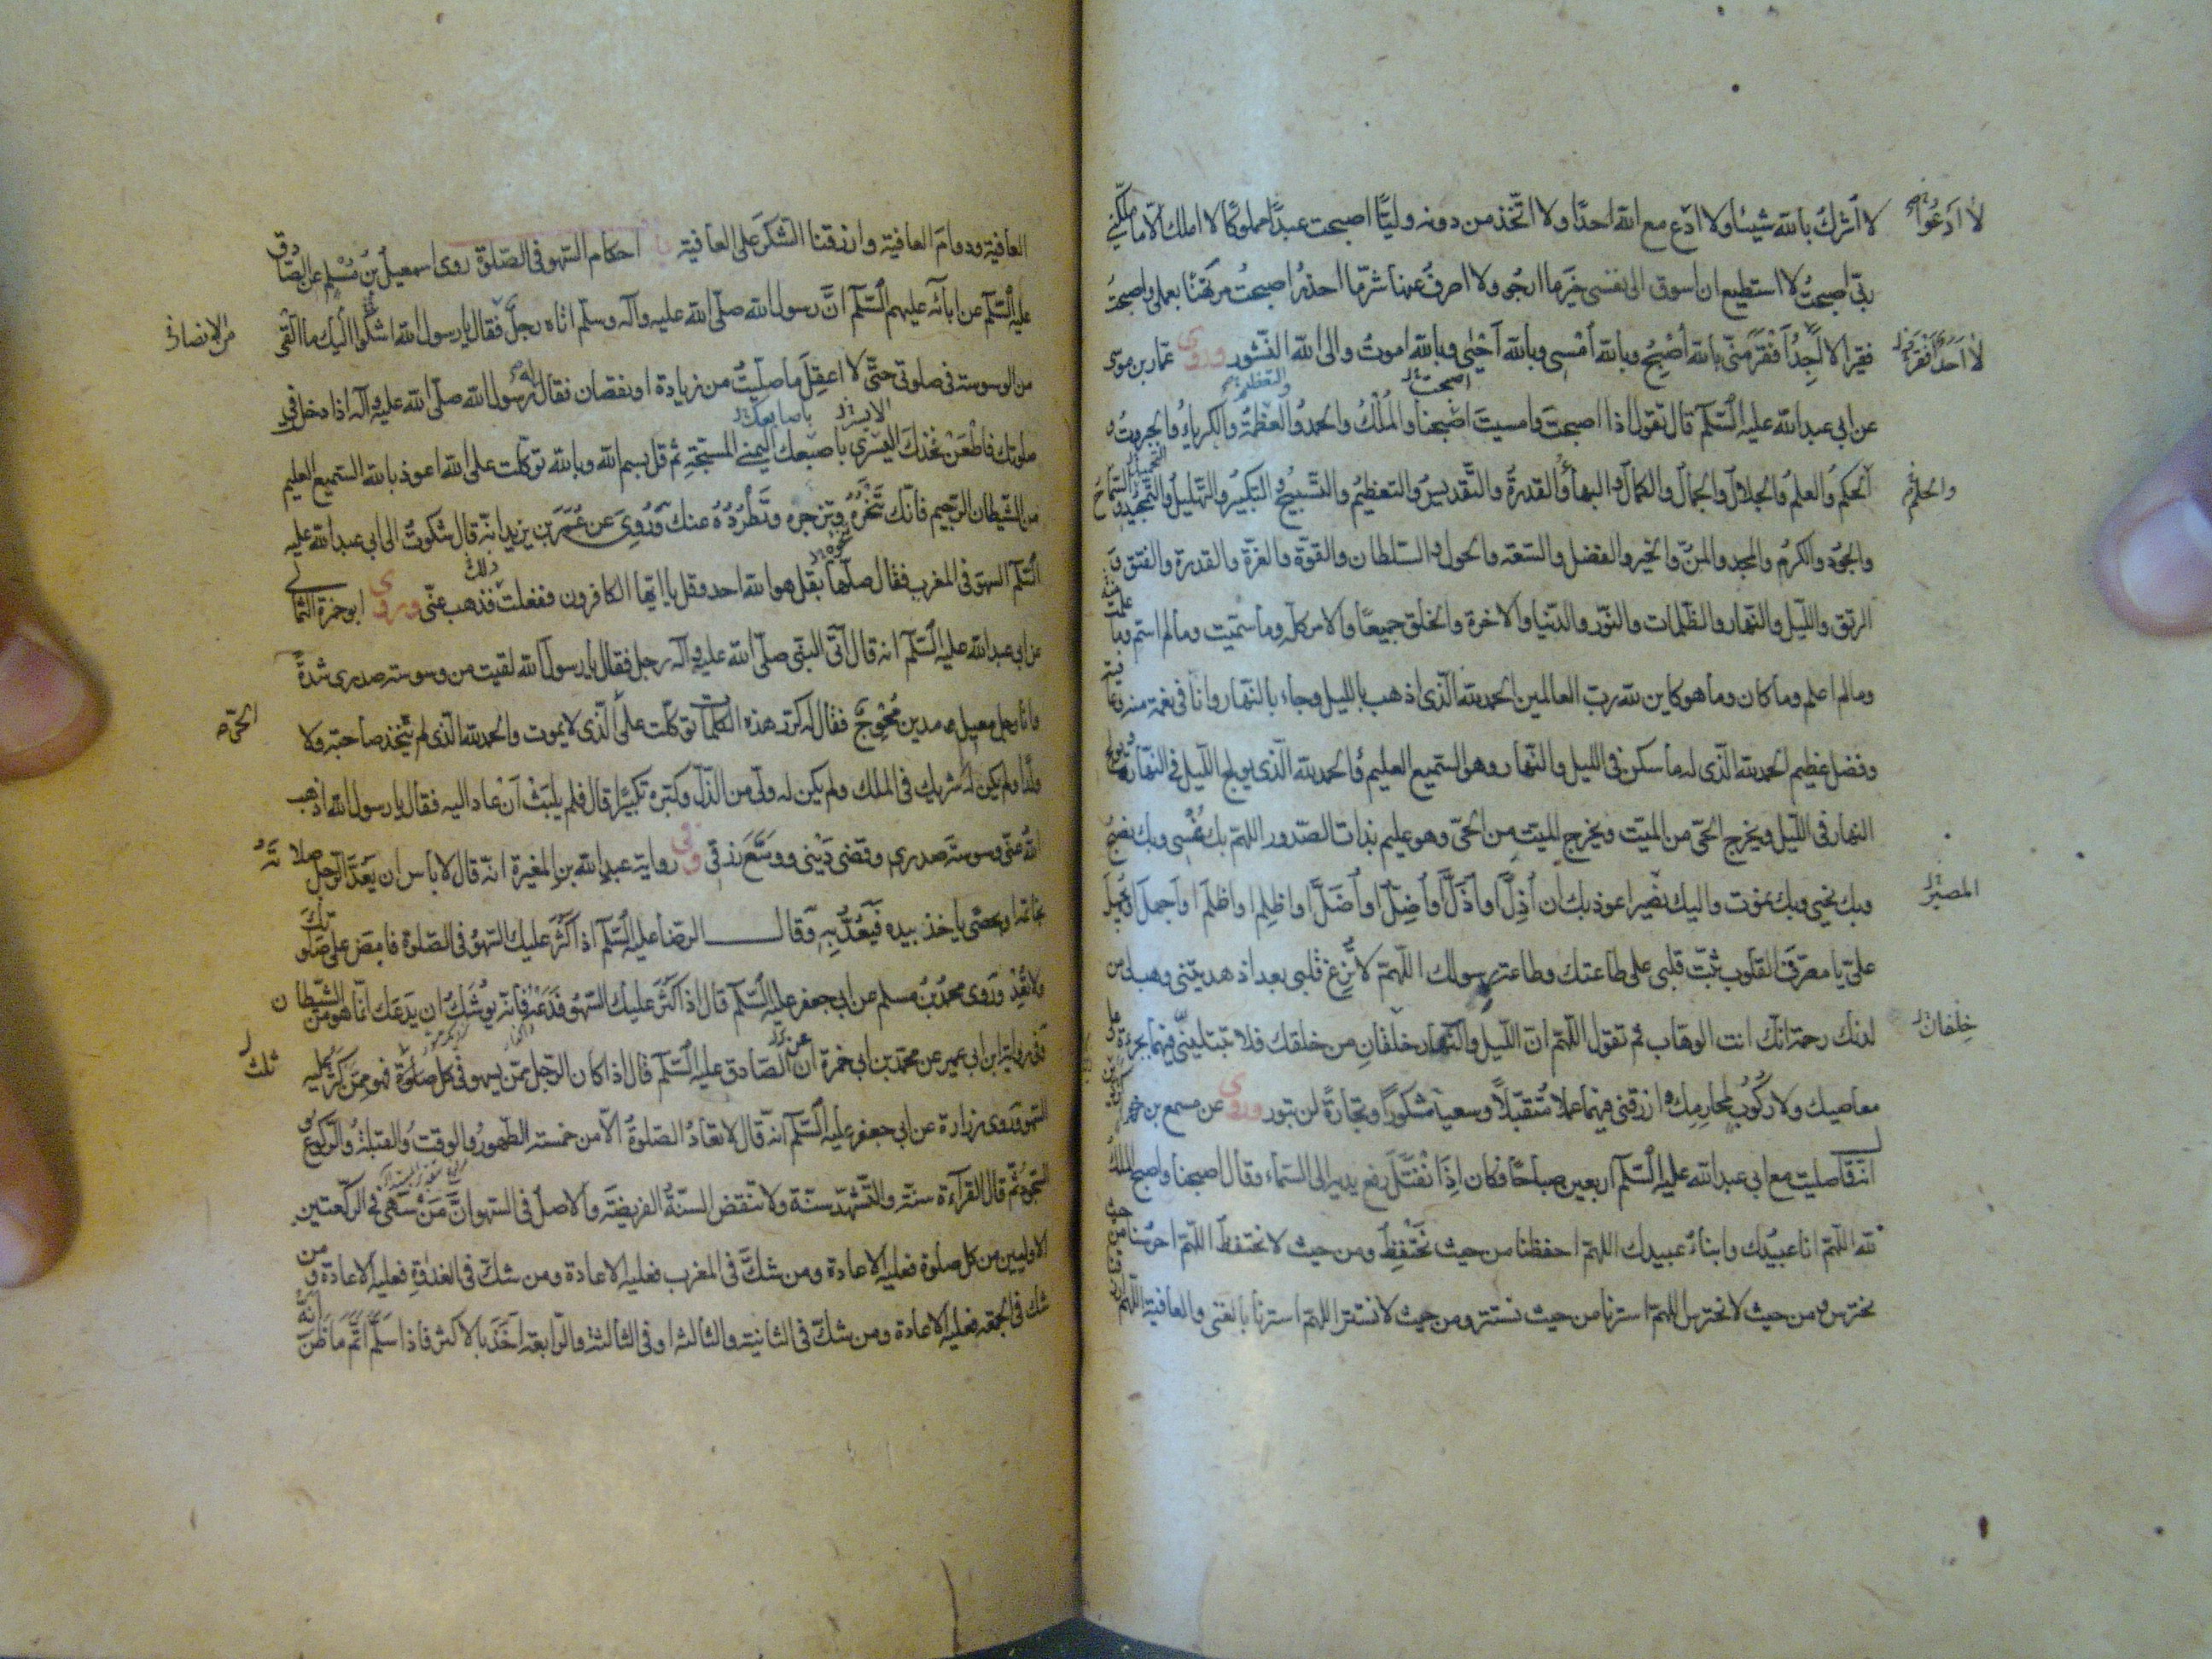 لا اشرك بالله شيئا ولا ادع مع الله احدا ولا اتخذ من دونه وليا اصبحت عبدا مملوكا لا املك الا ما ملكني
لا ادعوا
ربي اصبحت لا استطيع ان اسوق الى نفسي خير ما ارجو ولا اصرف عنها شر ما احذر اصبحت مرتهنا بعملي واصبحت
فقيرا لا اجد افقر مني بالله اصبح وبالله امسي وبالله احيى وبالله اموت والى الله النشور وروى عمار بن موسى
لا احد افقر
عن ابي عبد الله عليه السلم قال تقول اذا اصبحت وامسيت اصبحنا والملك والحمد والعظمة والكبرياء والجبروت و
اصبحت
والتعظيم
الحكم والعلم والجلال والجمال والكمال والبهاء والقدرة والتقديس والتعظيم والتسبيح والتكبير والتهليل والتمجيد والسماح
والحلم
التحميد
والجود والكرم والمجد والمن والخير والفضل والسعة والحول والسلطان والقوة والعزة والقدرة والفتق و
الرتق والليل والنهار والظلمات والنور والدنيا والاخرة والخلق جميعا والامر كله وما سميت وما لم اسم وما
علمت
وما لم اعلم وما كان وما هو كاين لله رب العالمين الحمد لله الذي اذهب بالليل وجاء بالنهار وانا في نعمة منه وعافية
وفضل عظيم الحمد لله الذي له ما سكن في الليل والنهار وهو السميع العليم والحمد لله الذي يولج الليل في النهار ويولج
النهار في الليل ويخرج الحي من الميت ويخرج الميت من الحي وهو عليم بذات الصدور اللهم بك نمسي وبك نصبح
وبك نحيى وبك نموت واليك نصير اعوذ بك ان اذل او اذل او اضل او اضل او اظلم او اظلم او اجهل او يجهل
المصير
علي يا مصرف القلوب ثبت قلبي على طاعتك وطاعة رسولك اللهم لا تزغ قلبي بعد اذ هديتني وهب لي من
لدنك رحمة انك انت الوهاب ثم تقول اللهم ان الليل والنهار خلقان من خلقك فلا تبتليني فيهما بجرءة على
خلفان
معاصيك ولا ركوب لمحارمك وارزقني فيهما عملا متقبلا وسعيا مشكورا وتجارة لن تبور وروى عن مسمع بن
انه قال صليت مع ابي عبد الله عليه السلم اربعين صباحا فكان اذا انفتل رفع يديه الى السماء وقال اصبحنا واصبح الملك
لله اللهم انا عبيدك وابناء عبيدك اللهم احفظنا من حيث نحتفظ ومن حيث لا نحتفظ اللهم احرسنا من حيث
نحترس ومن حيث لا نحترس اللهم استرنا من حيث نستتر ومن حيث لا نستتر اللهم استرنا بالغنى والعافية اللهم ارزقنا
العافية ودوام العافية وارزقنا الشكر على العافية باب احكام السهو في الصلوة روى اسمعيل بن مسلم عن الصادق
عليه السلم عن ابائه عليهم السلم ان رسول الله صلى الله عليه وآله وسلم اتاه رجل فقال يا رسول الله اشكو اليك ما القى
من الانصار
من الوسوسة في صلوتي حتى لا اعقل ما صليت من زيادة او نقصان فقال له رسول الله صلى الله عليه وآله اذا دخل في
صلوتك فاطعن فخذك اليسرى باصبعك اليمنى المسبحة ثم قل بسم الله وبالله توكلت على الله اعوذ بالله السميع العليم
الايسر
باصابعك
من الشيطان الرجيم فانك تنحره وتزجره وتطرده عنك وروي عن عمر بن يزيد انه قال شكوت الى ابي عبد الله عليه
السلم السهو في المغرب فقال صلها بقل هو الله احد وقل يا ايها الكافرون ففعلت ذلك فذهب عني وروى ابو حمزة الثمالي
عن ابي عبد الله عليه السلم انه قال اتى النبي صلى الله عليه وآله رجل فقال يا رسول الله لقيت من وسوسة صدري شدة
وانا رجل معيل مدين محوج فقال له كرر هذه الكلمات توكلت على الذي لا يموت والحمد لله الذي لم يتخذ صاحبة ولا
الحي
ولدا ولم يكن له شريك في الملك ولم يكن له ولي من الذل وكبره تكبيرا قال فلم يلبث ان عاد اليه فقال يا رسول الله اذهب
الله عني وسوسة صدري وقضى ديني ووسع رزقي وفي رواية عبد الله بن المغيرة انه قال لا باس ان يعد الرجل صلاته
بخاتمه او بحصى ياخذ بيده فيعد به وقال الرضا عليه السلم اذا كثر عليك السهو في الصلوة فامض على صلوتك
ولا تعد وروى محمد بن مسلم عن ابي جعفر عليه السلم قال اذا كثر عليك السهو فدعه فانه يوشك ان يدعك انما هو من الشيطان
وفي رواية ابن ابي عمير عن محمد بن ابي حمزة ان الصادق عليه السلم قال اذا كان الرجل ممن يسهو في كل صلوة فهو ممن كثر عليه
ثلث
السهو وروى زرارة عن ابي جعفر عليه السلم انه قال لا تعاد الصلوة الا من خمسة الطهور والوقت والقبلة والركوع و
السجود ثم قال القراءة سنة والتشهد سنة ولا تنقض السنة الفريضة والاصل في السهو ان من سهى في الركعتين
الاوليين من كل صلوة فعليه الاعادة ومن شك في المغرب فعليه الاعادة ومن شك في الغداة فعليه الاعادة ومن
شك في الجمعة فعليه الاعادة ومن شك في الثانية والثالثة او في الثالثة والرابعة اخذ بالاكثر فاذا سلم اتم ما ظن انه